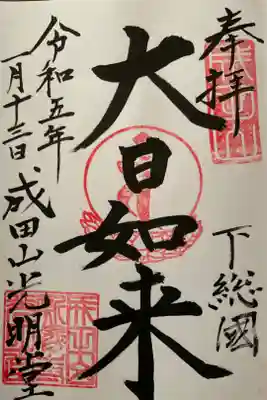 奉拝
下総國
大日如来
令和五年
一月十三日
成田山光明堂